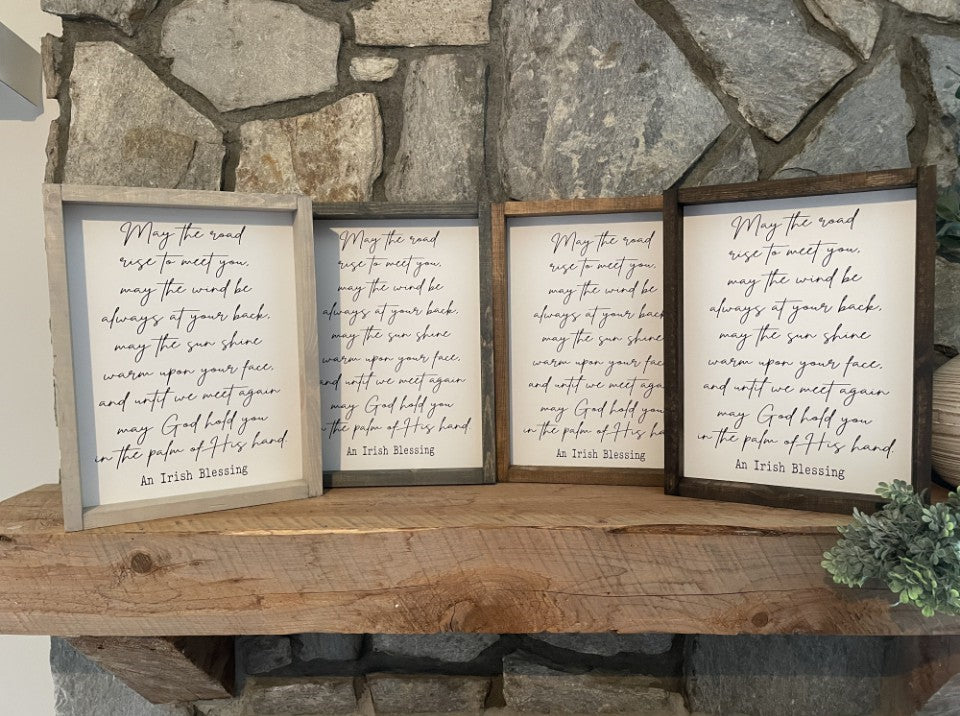 May the road
rise to meet you,
may the wind be
always at your back,
may the sun shine
warm upon your face,
and until we meet again
may God hold you
in the palm of His hand.
An Irish Blessing
May the road
rise to meet you,
may the wind be
always at your back,
may the sun shine
warm upon your face,
and until we meet again
may God hold you
in the palm of His hand.
An Irish Blessing
May the road
rise to meet you,
may the wind be
always at your back,
may the sun shine
warm upon your face,
and until we meet aga
may God hold you
in the palm of His ha
An Irish Blessing
May the road
rise to meet you,
may the wind be
always at your back,
may the sun shine
warm upon your face,
and until we meet again
may God hold you
in the palm of His hand.
An Irish Blessing